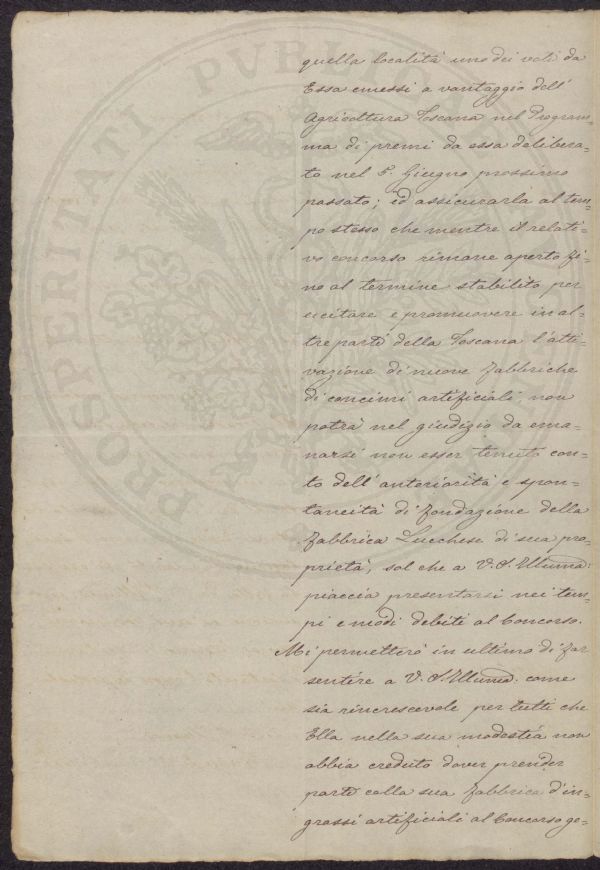 PROSPERITATI PVBLICAE
quella località uno dei voti da
Essa emessi a vantaggio dell'
Agricoltura Toscana nel Program=
ma di premi da essa delibera=
to nel 5 Giugno prossimo
passato; ed assicurarla al tem=
po stesso che mentre il relati=
vo concorso rimane aperto fi=
no al termine stabilito per
eccitare e promuovere in al=
tre parti della Toscana l'atti=
vazione di nuove fabbriche
di concimi artificiali, non
potrà nel giudizio da ema=
narsi non esser tenuto con=
to dell'anteriorità e spon=
taneità di fondazione della
fabbrica Lucchese di sua pro=
prietà, sol che a V. S. Illuma:
piaccia presentarsi nei tem=
pi e modi debiti al Concorso.
Mi permetterò in ultimo di far
sentire a V. S. Illuma: come
sia rincrescevole per tutti che
Ella nella sua modestia non
abbia creduto dover prender
parte colla sua fabbrica d'in=
grassi artificiali al Concorso ge=